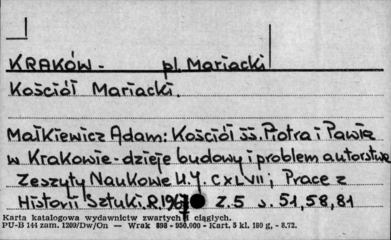 KRAKÓW - pl. Mariacki
Kościół Mariacki.
Małkiewicz Adam: Kościół śś. Piotra i Pawła
w Krakowie - dzieje budowy i problem autorstwa
Zeszyty Naukowe U.J. CXLVII; Prace z
Historii Sztuki. R. Z. 5 s. 51, 58, 81
Karta katalogowa wydawnictw zwartych i ciągłych.
PU-B 144 zam. 1209/Dw/On — Wrak 898 - 950.000 - Kart. 5 kl. 180 g, - 8.72.